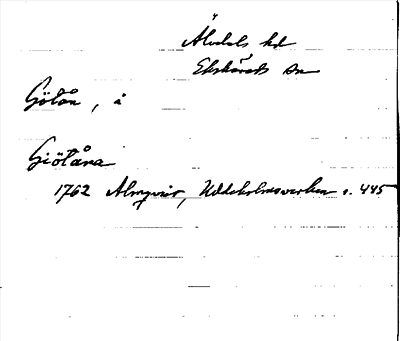 Älvdals hd
Ekshärads sn
Götån, å
Giötåna
1762 Almqvist, Uddeholmsverken s. 445